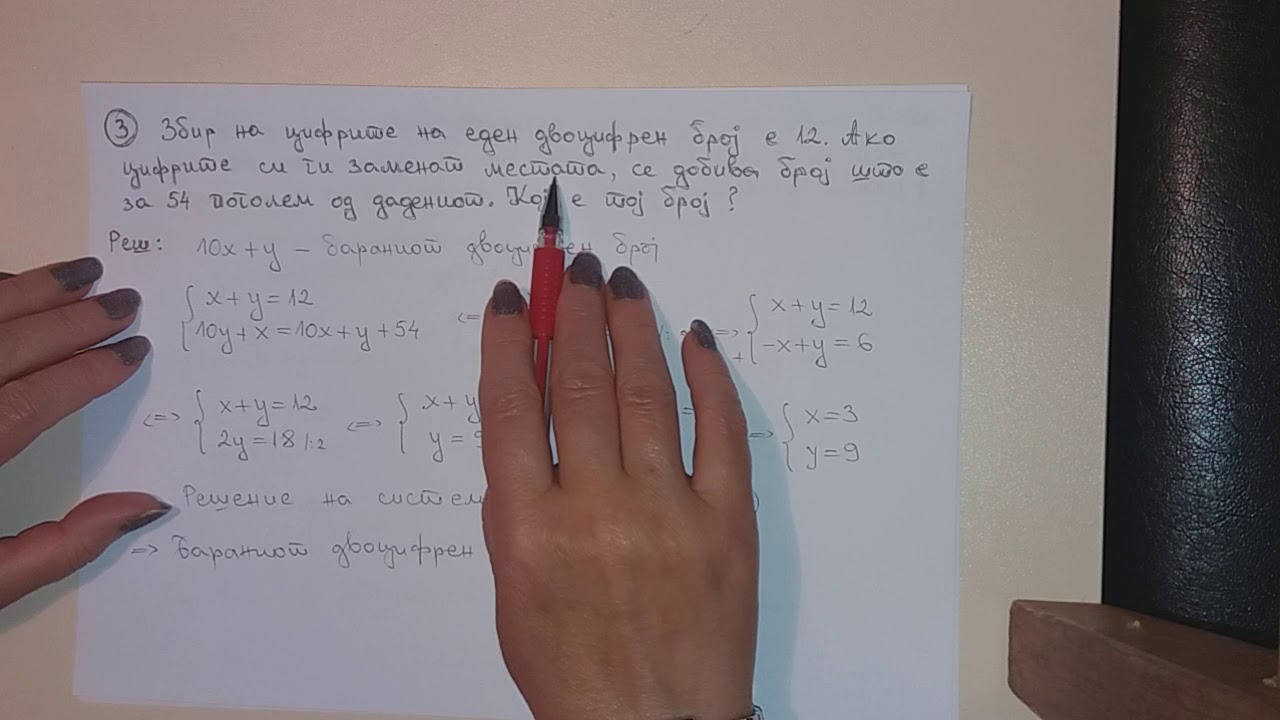 ③ Збир на цифрите на еден двоцифрен број е 12. Ако
цифрите си ги заменат местата, се добива број што е
за 54 поголем од дадениот. Кој е тој број?
Реш: 10x+y – бараниот број
{ x+y=12 <=> => { x+y=12
10y+x=10x+y+54 + -x+y=6
<=> { x+y=12 <=> { x+y => { x=3
2y=18 /:2 y= y=9
Решение на
=> Бараниот двоцифрен